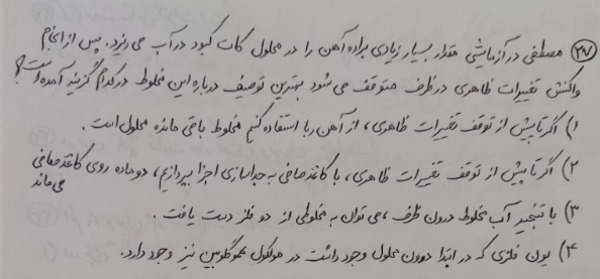 ۳۷) مصطفی در آزمایشی مقدار بسیار زیادی براده آهن را در محلول کات کبود در آب می ریزد. پس از انجام
واکنش تغییرات ظاهری در ظرف متوقف می شود بهترین توصیف درباره این مخلوط در کدام گزینه آمده است؟
۱) اگر تا پیش از توقف تغییرات ظاهری، از آهن ربا استفاده کنیم مخلوط باقی مانده محلول است.
۲) اگر تا پیش از توقف تغییرات ظاهری، با کاغذ صافی به جداسازی اجزا بپردازیم، دو ماده روی کاغذ صافی می ماند
۳) با تبخیر آب مخلوط درون ظرف، می توان به مخلوطی از دو فلز دست یافت.
۴) یون فلزی که در ابتدا درون محلول وجود داشت در مولکول هموگلوبین نیز وجود دارد.